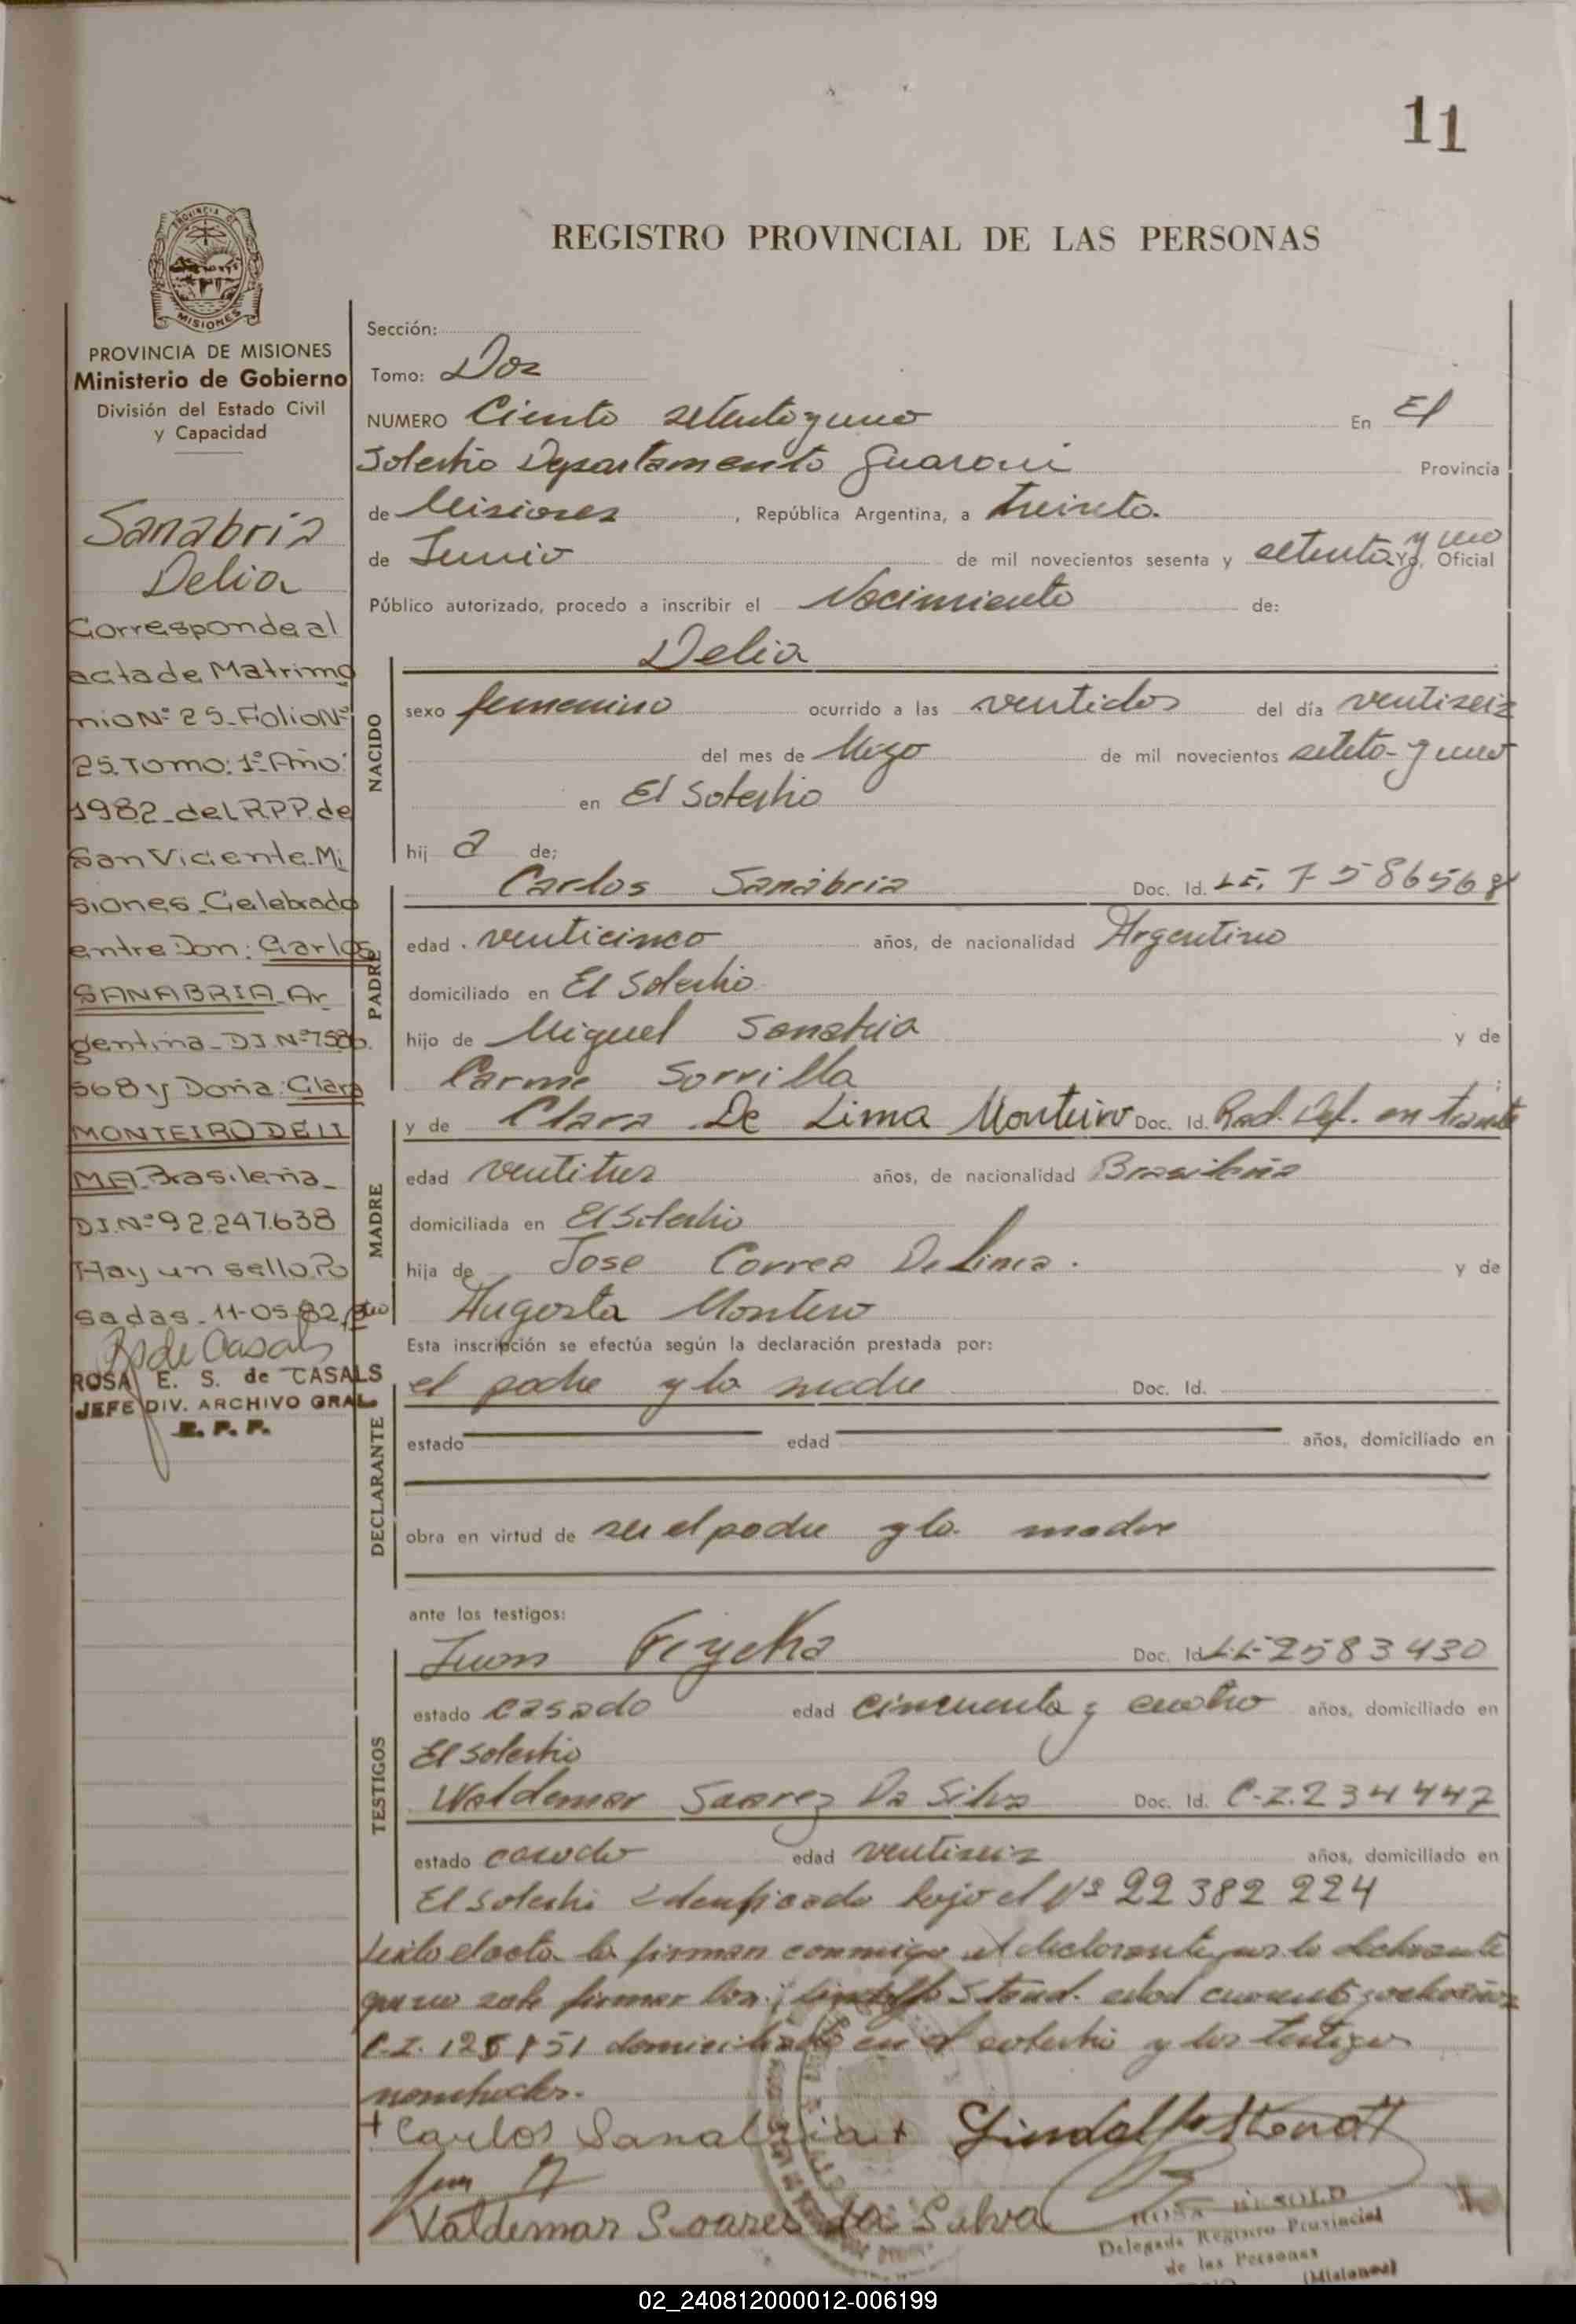 11
PROVINCIA DE
MISIONES
REGISTRO PROVINCIAL DE LAS PERSONAS
PROVINCIA DE MISIONES
Ministerio de Gobierno
División del Estado Civil
y Capacidad
Sanabria
Delia
Corresponde al
acta de Matrimo
nio Nº 25 Folio Nº
25 Tomo: 1º Año:
1982 del R.P.P. de
San Vicente Mi
siones Celebrado
entre Don: Carlos
SANABRIA Ar
gentina D.I. Nº 7586.
568 y Doña: Clara
MONTEIRO DE LI
MA Brasileña
D.I. Nº 92.247.638
Hay un sello Po
sadas 11-05-82
R S de Casals
ROSA E. S. de CASALS
JEFE DIV. ARCHIVO GRAL
R. P. P.
Sección:
Tomo: Dos
NUMERO Ciento setenta y uno En El
Soberbio Departamento Guarani Provincia
de Misiones, República Argentina, a treinta
de Junio de mil novecientos sesenta y setenta y uno Yo, Oficial
Público autorizado, procedo a inscribir el Nacimiento de:
Delia
NACIDO
sexo femenino ocurrido a las ventidos del día ventiseis
del mes de Mayo de mil novecientos seteta y uno
en El Soberbio
hij a de:
PADRE
Carlos Sanabria Doc. Id. L.E. 7586568
edad venticinco años, de nacionalidad Argentino
domiciliado en El Soberbio
hijo de Miguel Sanabria y de
Carme Sorrilla ;
MADRE
y de Clara De Lima Monteiro Doc. Id. Rad. Def. en tramite
edad ventitres años, de nacionalidad Brasileña
domiciliada en El Soberbio
hija de Jose Correa De Lima y de
Augosta Montero
Esta inscripción se efectúa según la declaración prestada por:
DECLARANTE
el padre y la madre Doc. Id.
estado edad años, domiciliado en
obra en virtud de ser el padre y la madre
ante los testigos:
TESTIGOS
Juan Doc. Id. L.E. 2583430
estado casado edad cincuenta y cuatro años, domiciliado en
El Soberbio
Waldemar Soarez Da Silva Doc. Id. C.I. 234447
estado casado edad ventiseis años, domiciliado en
El Soberbio bajo el Nº 22 382 224
Leida el acta la firman conmigo el declarante por la declarante
que no sabe firmar edad cuarenta y ocho años
C.I. domiciliado en el soberbio y los testigos
nombrados.
+ Carlos Sanabria + Lindolfo
Valdemar Soares da Silva
ROSA BESOLD
Delegada Registro Provincial
de las Personas
(Misiones)
02_240812000012-006199